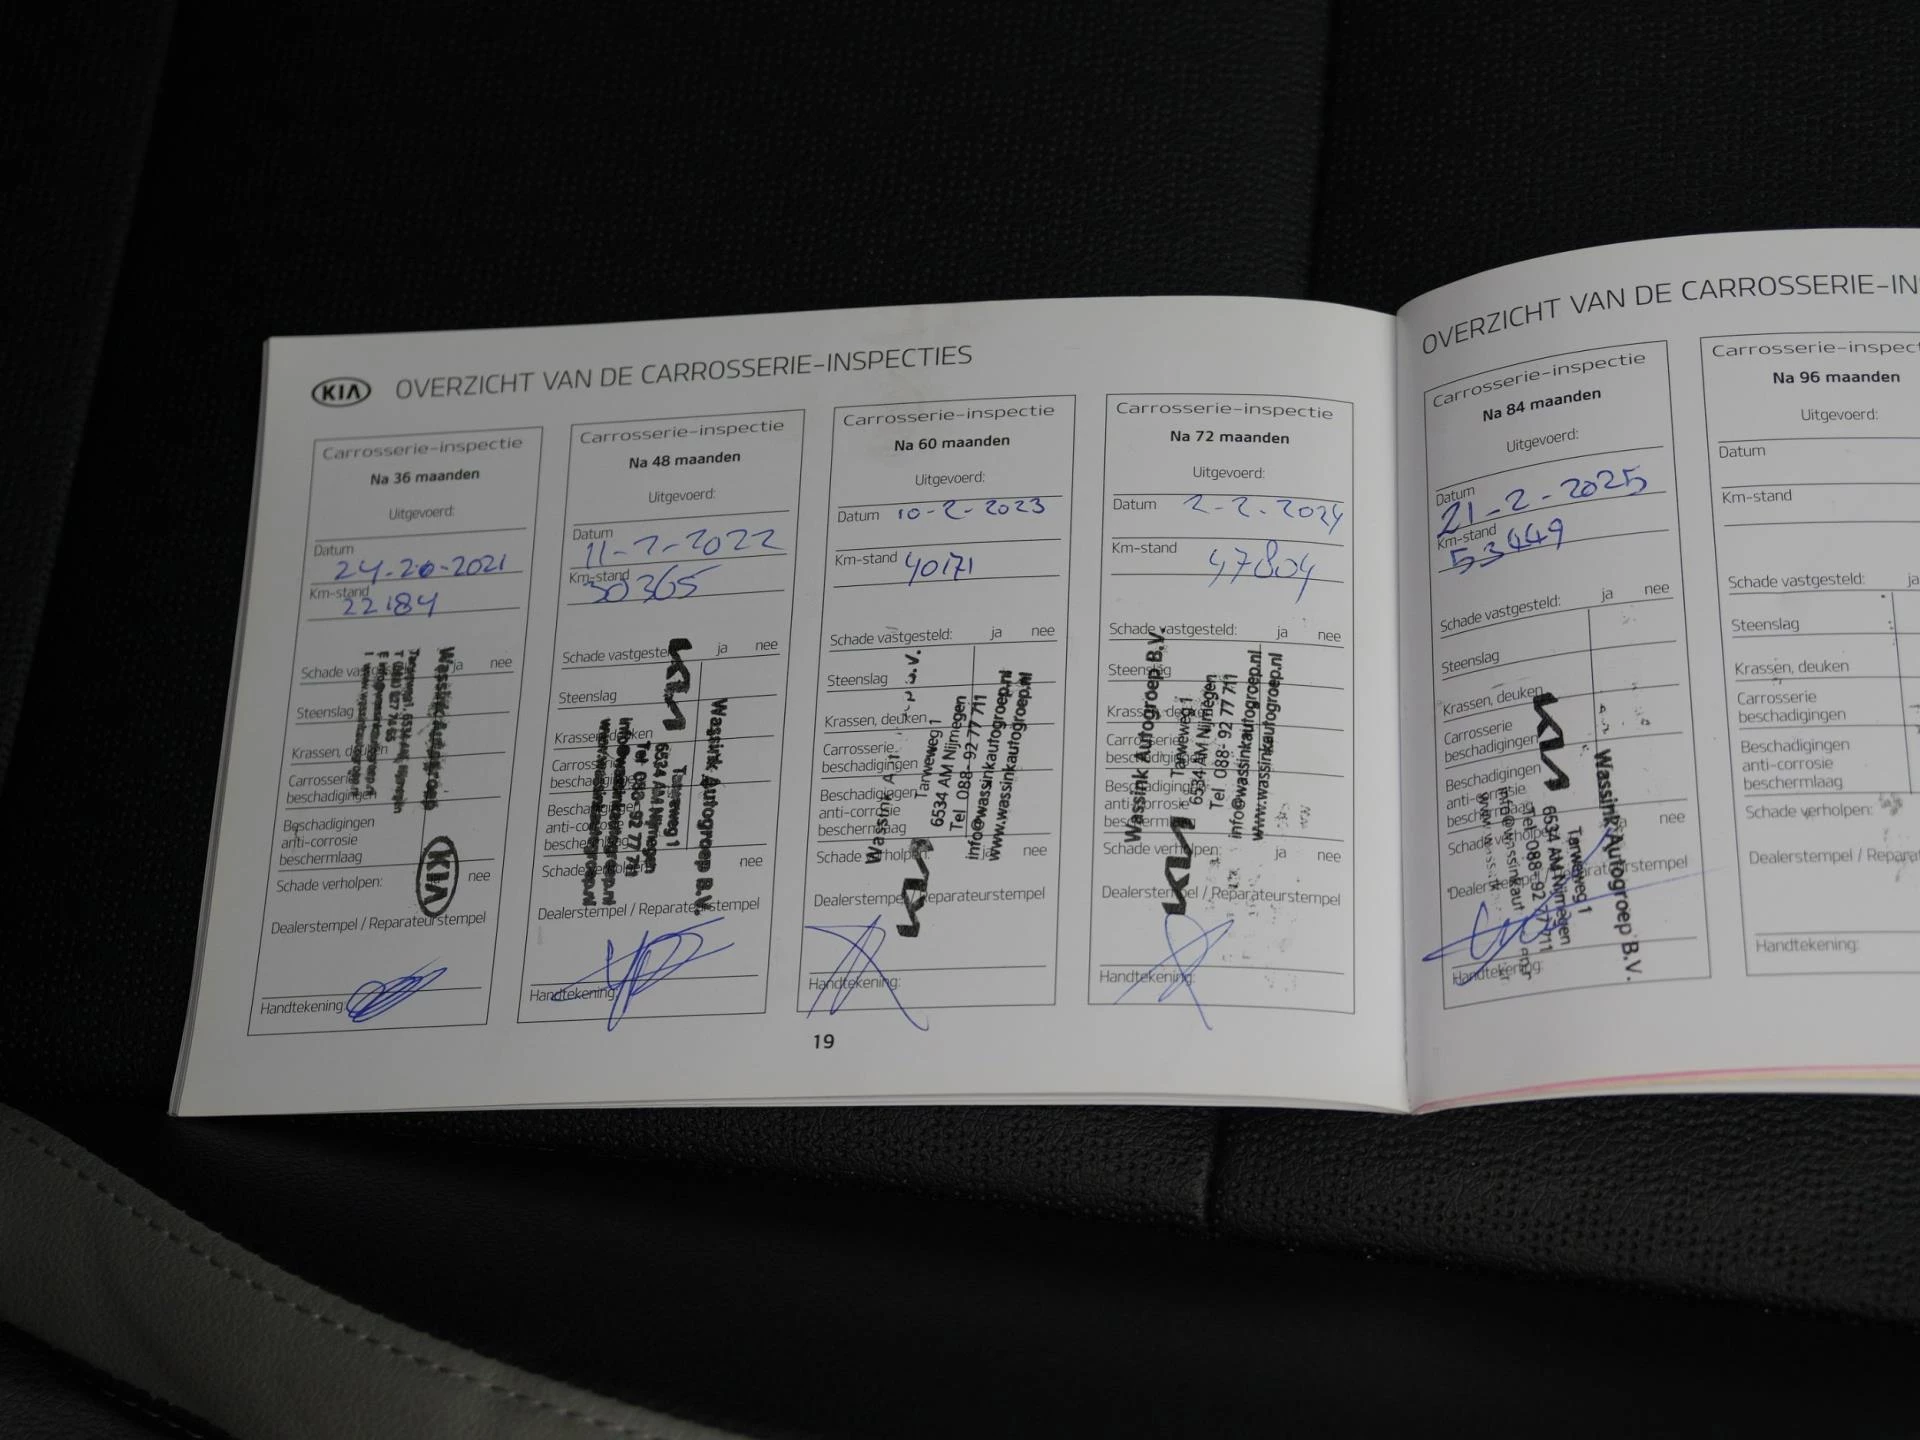 KIA OVERZICHT VAN DE CARROSSERIE-INSPECTIES
Carrosserie-inspectie
Na 36 maanden
Uitgevoerd:
Datum
Km-stand
22184
Schade ja nee
Steenslag
Krassen, deuken
Carrosserie
beschadigingen
Beschadigingen
anti-corrosie
beschermlaag
Schade verholpen: nee
Dealerstempel / Reparateurstempel
Handtekening:
Wassink Autogroep
KIA
Carrosserie-inspectie
Na 48 maanden
Uitgevoerd:
Datum
11-2-2022
Km-stand
30365
Schade vastgesteld ja nee
Steenslag
Krassen, deuken
Carrosserie
beschadigingen
Beschadigingen
anti-corrosie
beschermlaag
Schade verholpen nee
Dealerstempel / Reparateurstempel
Handtekening:
KIA
Wassink Autogroep B.V.
Tarweweg 1
6534 AM Nijmegen
Tel 088-92 77 711
info@wassinkautogroep.nl
www.wassinkautogroep.nl
Carrosserie-inspectie
Na 60 maanden
Uitgevoerd:
Datum 10-2-2023
Km-stand 40171
Schade vastgesteld: ja nee
Steenslag
Krassen, deuken
Carrosserie
beschadigingen
Beschadigingen
anti-corrosie
beschermlaag
Schade verholpen: ja nee
Dealerstempel / Reparateurstempel
Handtekening:
KIA
Wassink
Tarweweg 1
6534 AM Nijmegen
Tel 088-92 77 711
info@wassinkautogroep.nl
www.wassinkautogroep.nl
Carrosserie-inspectie
Na 72 maanden
Uitgevoerd:
Datum 2-2-2024
Km-stand 47804
Schade vastgesteld: ja nee
Steenslag
Krassen, deuken
Carrosserie
beschadigingen
Beschadigingen
anti-corrosie
beschermlaag
Schade verholpen: ja nee
Dealerstempel / Reparateurstempel
Handtekening:
KIA
Wassink Autogroep B.V.
Tarweweg 1
6534 AM Nijmegen
Tel 088-92 77 711
info@wassinkautogroep.nl
www.wassinkautogroep.nl
19
OVERZICHT VAN DE CARROSSERIE-IN
Carrosserie-inspectie
Na 84 maanden
Uitgevoerd:
Datum
21-2-2025
Km-stand
53449
Schade vastgesteld: ja nee
Steenslag
Krassen, deuken
Carrosserie
beschadigingen
Beschadigingen
anti-corrosie
beschermlaag
Schade verholpen ja nee
Dealerstempel / Reparateurstempel
Handtekening:
KIA
Wassink Autogroep B.V.
Tarweweg 1
6534 AM Nijmegen
Tel 088-92 77 711
Carrosserie-inspect
Na 96 maanden
Uitgevoerd:
Datum
Km-stand
Schade vastgesteld: ja
Steenslag
Krassen, deuken
Carrosserie
beschadigingen
Beschadigingen
anti-corrosie
beschermlaag
Schade verholpen:
Dealerstempel / Reparat
Handtekening: